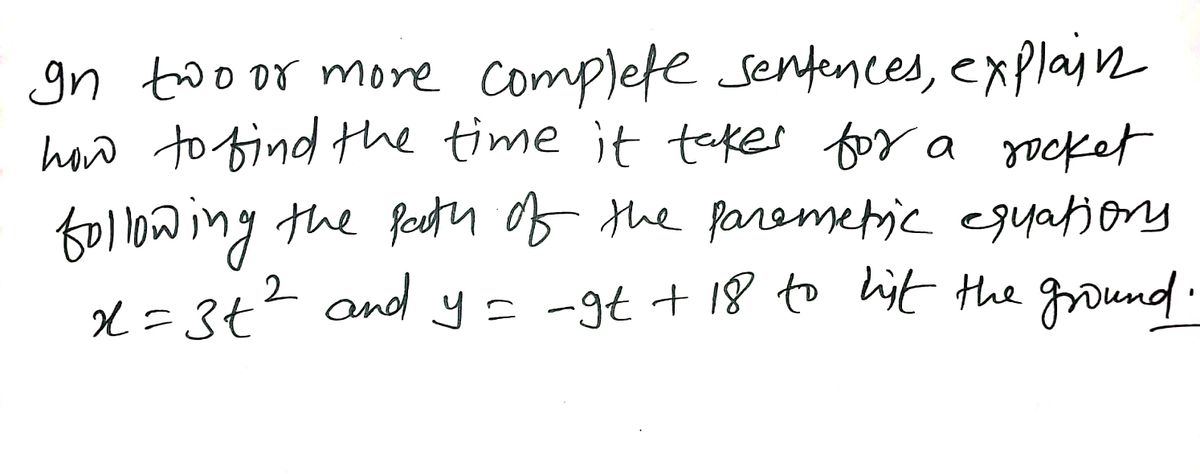 In two or more complete sentences, explain
how to find the time it takes for a rocket
following the path of the parametric equations
x = 3t² and y = -9t + 18 to hit the ground.